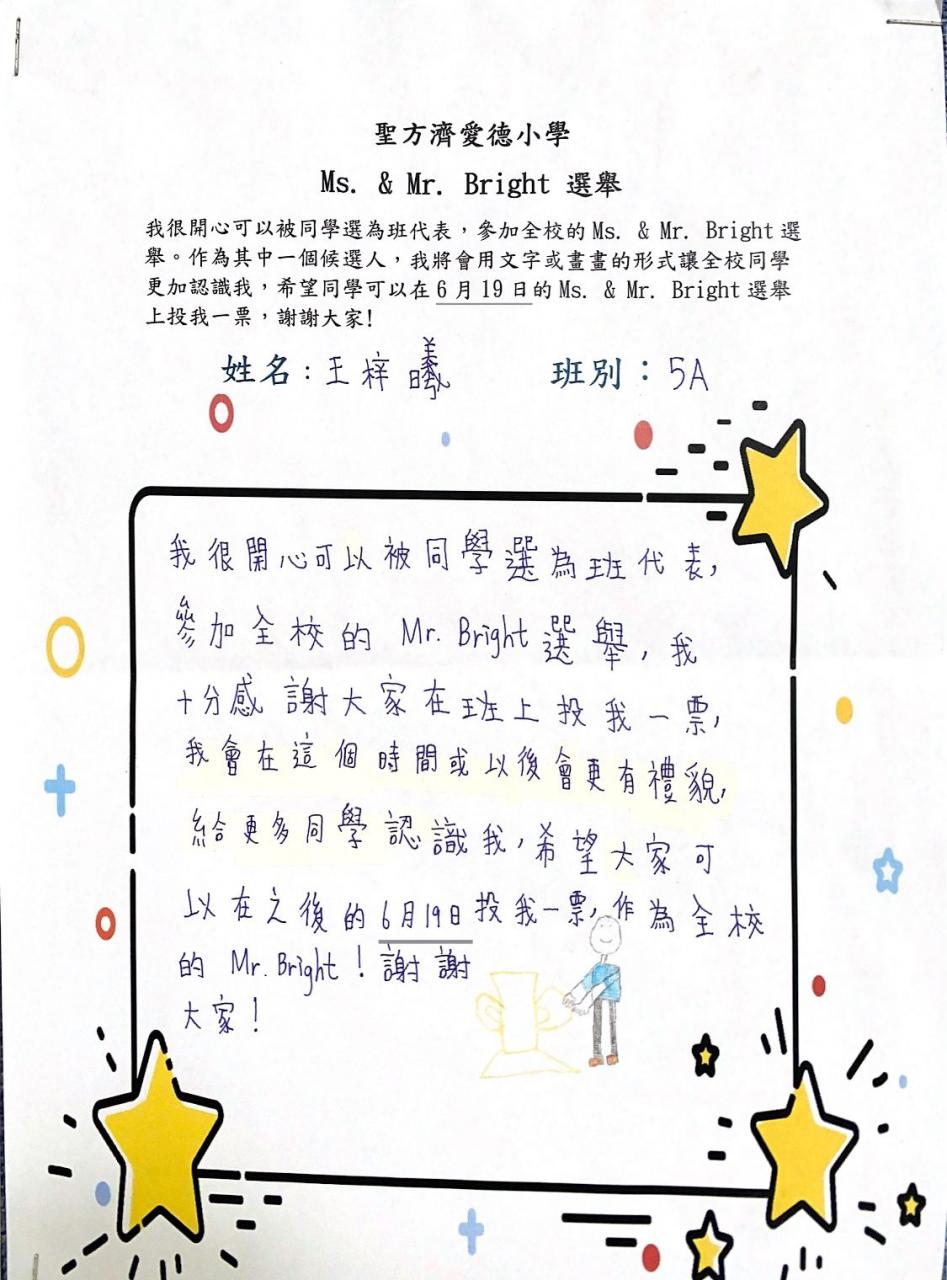 聖方濟愛德小學
Ms. & Mr. Bright 選舉
我很開心可以被同學選為班代表，參加全校的 Ms. & Mr. Bright 選
舉。作為其中一個候選人，我將會用文字或畫畫的形式讓全校同學
更加認識我，希望同學可以在 6 月 19 日的 Ms. & Mr. Bright 選舉
上投我一票，謝謝大家!
姓名：王梓曦 班別：5A
我很開心可以被同學選為班代表，
參加全校的 Mr. Bright 選舉，我
十分感謝大家在班上投我一票，
我會在這個時間或以後會更有禮貌，
給更多同學認識我，希望大家可
以在之後的6月19日投我一票，作為全校
的 Mr. Bright！謝謝
大家！